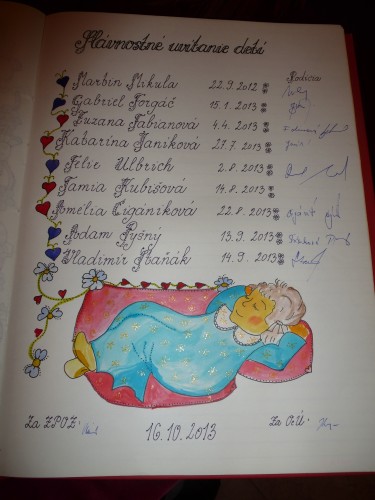 Slávnostné uvítanie detí
Rodičia
Martin Mikula 22.9.2012
Gabriel Forgáč 15.1.2013
Zuzana Fabianová 4.4.2013
Katarína Janíková 27.7.2013
Félie Ulbrich 2.8.2013
Tamia Kubišová 14.8.2013
Cigániková 22.8.2013
Adam Pyšný 13.9.2013
Vladimír 14.9.2013
Za ZPOZ: 16.10.2013 Za OÚ: